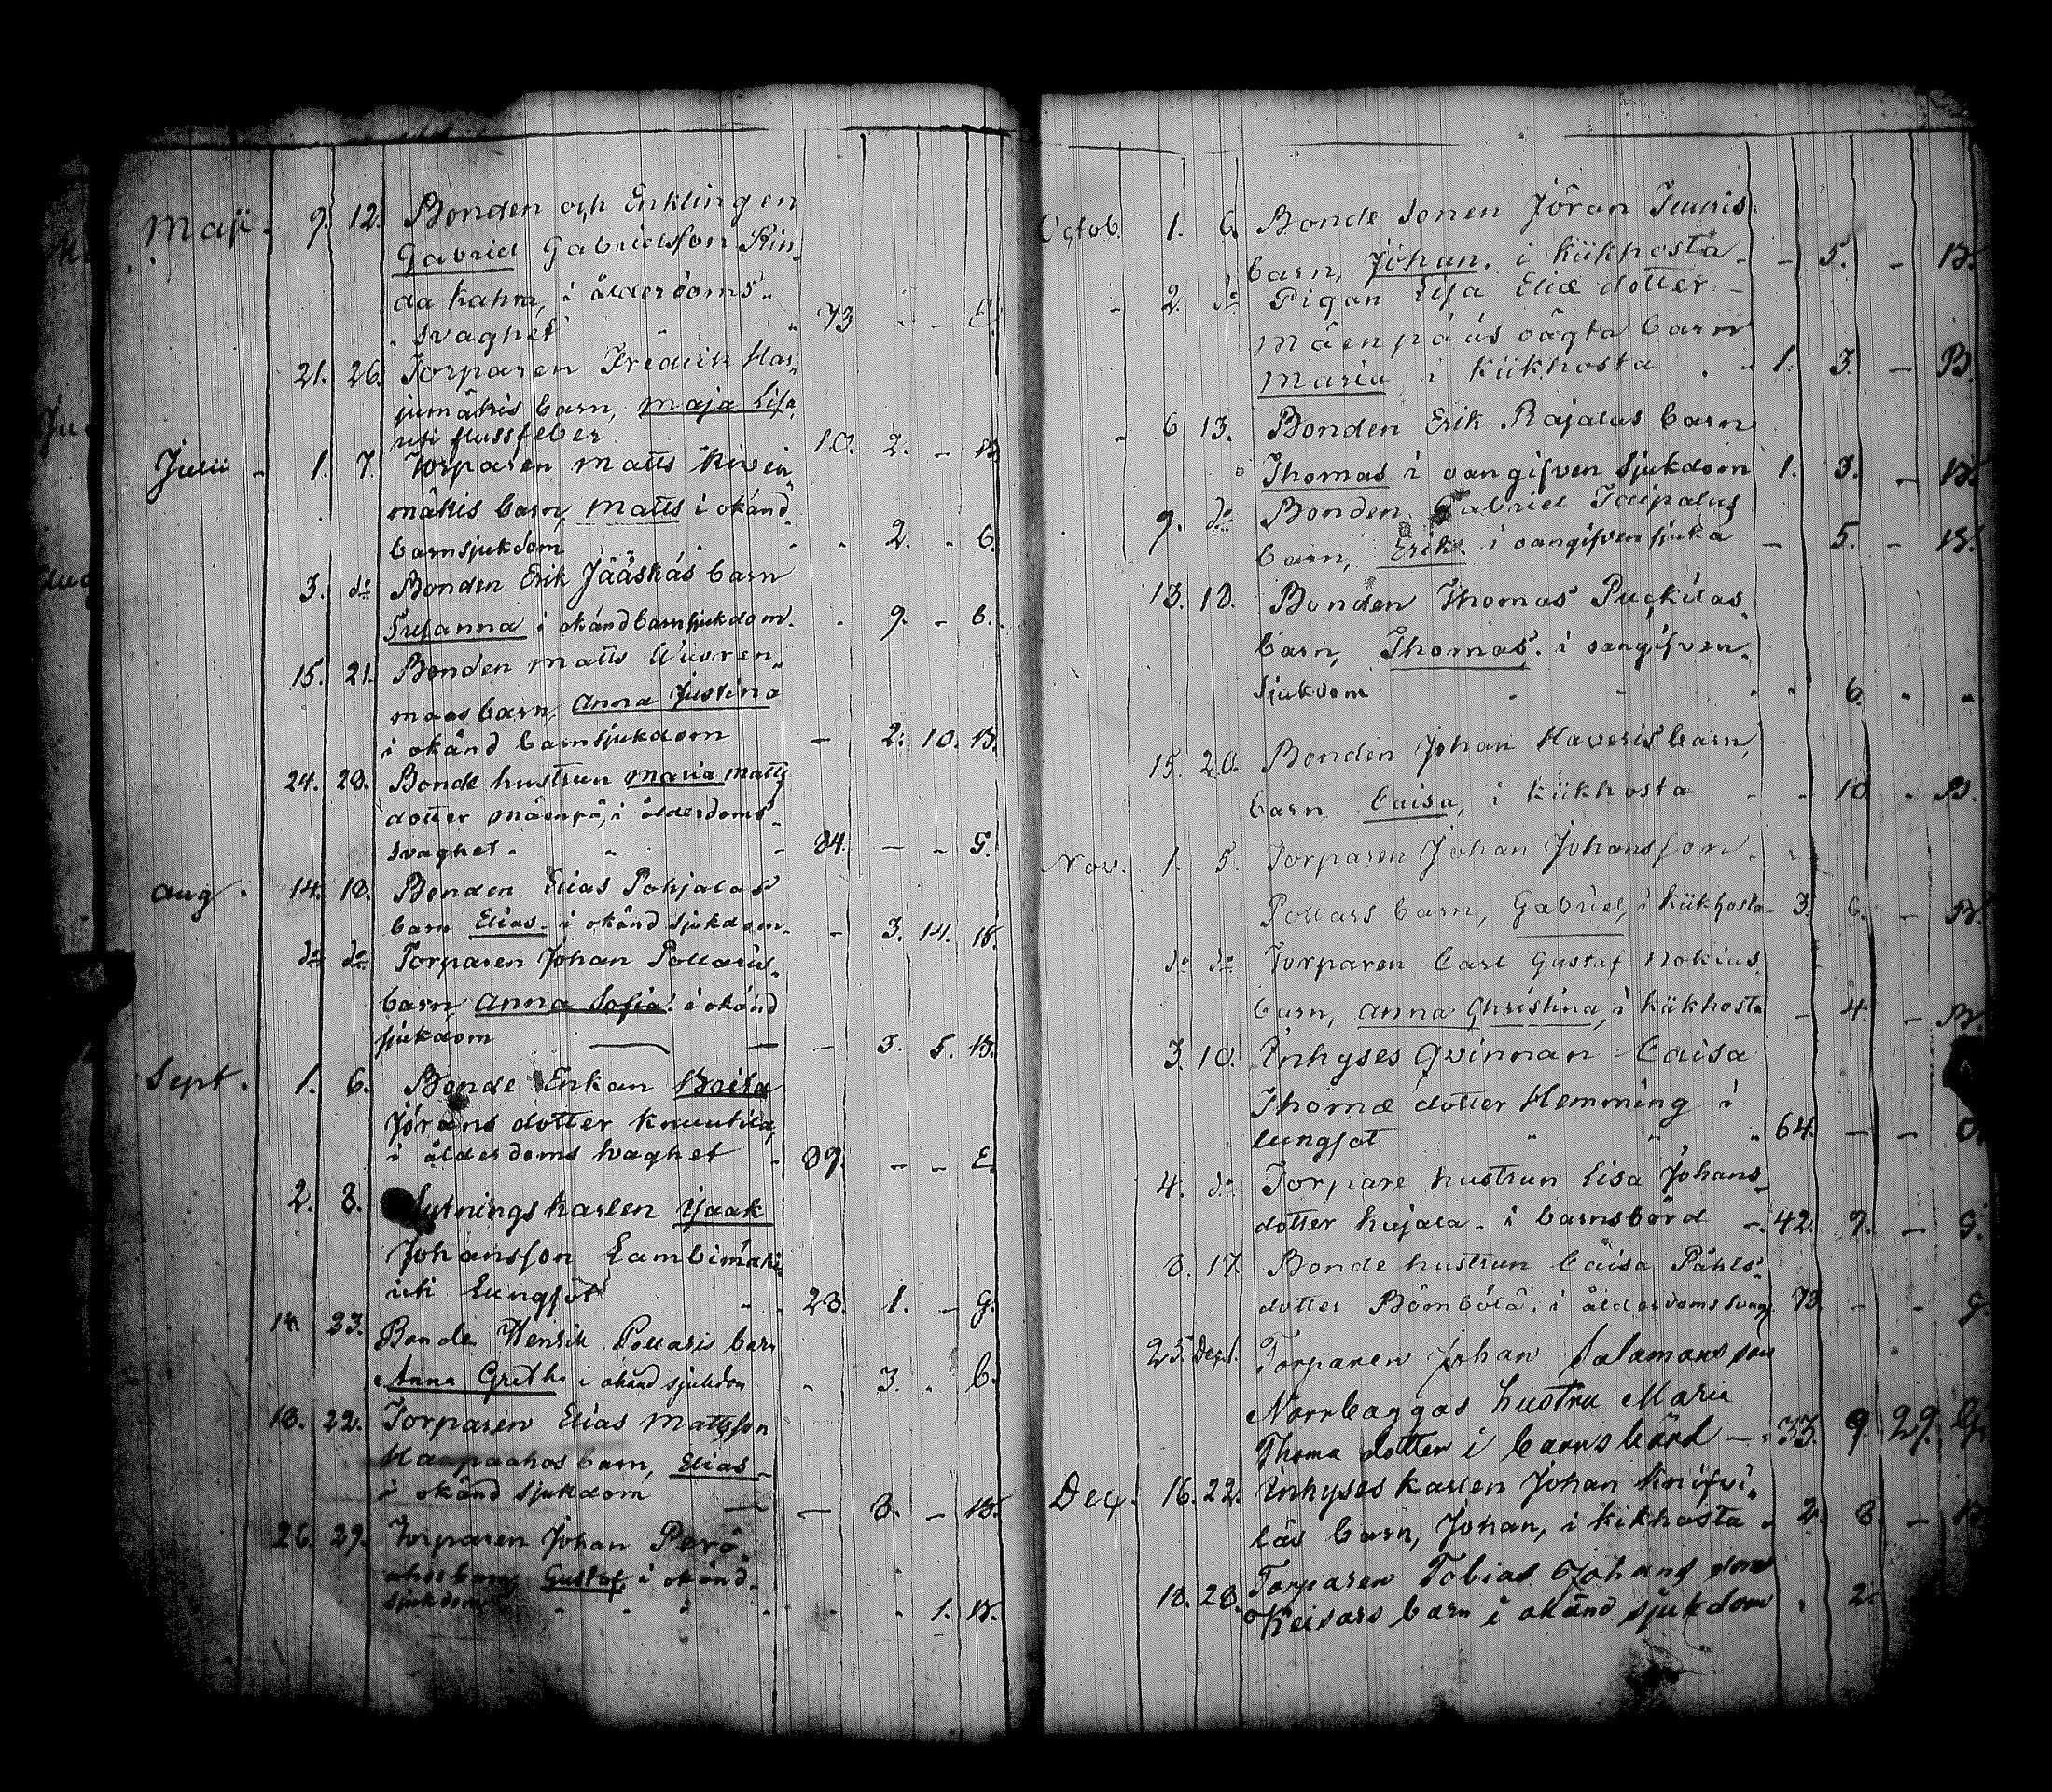 Maji. 9. 12. Bonden och Enklingen
Gabriel Gabrielsson Kin-
da kahra, i ålderdoms-
svaghet 73 - - E.
21. 26. Torparen Fredrik Har-
jumäkis barn, Maja Lisa,
uti flussfeber 10. 2. - B
Julii - 1. 7. Torparen Matts Kivin-
mäkis barn, Matts i okänd
barnsjukdom - 2. - G.
3. do Bonden Erik Jääskäs barn
Susanna i okänd barnsjukdom. - 9. - G.
15. 21. Bonden Matts Wuoren-
maas barn, Anna Justina
i okänd barnsjukdom - 2. 10. B.
24. 28. Bonde hustrun Maria Matts
dotter Mäenpä, i ålderdoms-
svaghet. 84. - - G.
Aug. 14. 18. Bonden Elias Pohjalas
barn Elias. i okänd sjukdom. - 3. 14. B.
do do Torparen Johan Pollaris-
barn Anna Sofia. i okänd
sjukdom - 3. 5. B.
Sept. 1. 6. Bonde Enkan Brita
Jörans dotter Knuutila,
i ålderdoms svaghet 89. - - E.
2. 8. Sytningskarlen Isaak
Johansson Lambimäki
uti Lungsot 28. 1. - G.
14. 23. Bonde Henrik Pollaris barn
Anna Greth. i okänd sjukdom - 3. - G.
18. 22. Torparen Elias Mattsson
Haapaahos barn, Elias
i okänd sjukdom - 8. - B.
26. 29. Torparen Johan Perä-
ahos barn, Gustaf, i okänd
sjukdom - - 1. B.
Octob. 1. 6. Bonde Sonen Jöran Juuris
barn, Johan. i kikhosta - - 5. - B.
- 2. do Pigan Lisa Eliæ dotter
Mäenpääs oägta barn
Maria i kikhosta 1. 3. - B.
- 6 13. Bonden Erik Rajalas barn
Thomas i oangifven sjukdom 1. 3. - B.
9. do Bonden Gabriel Taipalus
barn, Erik. i oangifven sjuka - 5. - B.
13. 18. Bonden Thomas Puckilas
barn, Thomas. i oangifven-
sjukdom - 6. - -
15. 20. Bonden Johan Haveris barn,
barn Caisa, i kikhosta - 10 - B.
Nov. 1. 5. Torparen Johan Johansson
Pollars barn, Gabriel, i kikhosta 3. 6. - B.
do do Torparen Carl Gustaf Nokius
barn, Anna Christina, i kikhosta - 4. - B.
3. 10. Inhyses Qvinnan Caisa
Thomæ dotter Hemming i
lungsot 64. - -
4. do Torpare hustrun Lisa Johans-
dotter Kujala - i barnsbörd - 42. 7. - G.
8. 17. Bonde hustrun Caisa Påhls-
dotter Bömbölä. i ålderdoms svagh. 73 - - G.
25. Torparen Johan Salamonsson
Norrbaggas hustru Maria
Thoma dotter i barnsbörd - 33. 9. 29. G.
Dec. 16. 22. Inhyses karlen Johan Knifsi-
läs barn, Johan, i kikhosta - 2. 8. - B.
18. 28. Torparen Tobias Johans son
Keisars barn i okänd sjukdom 2.